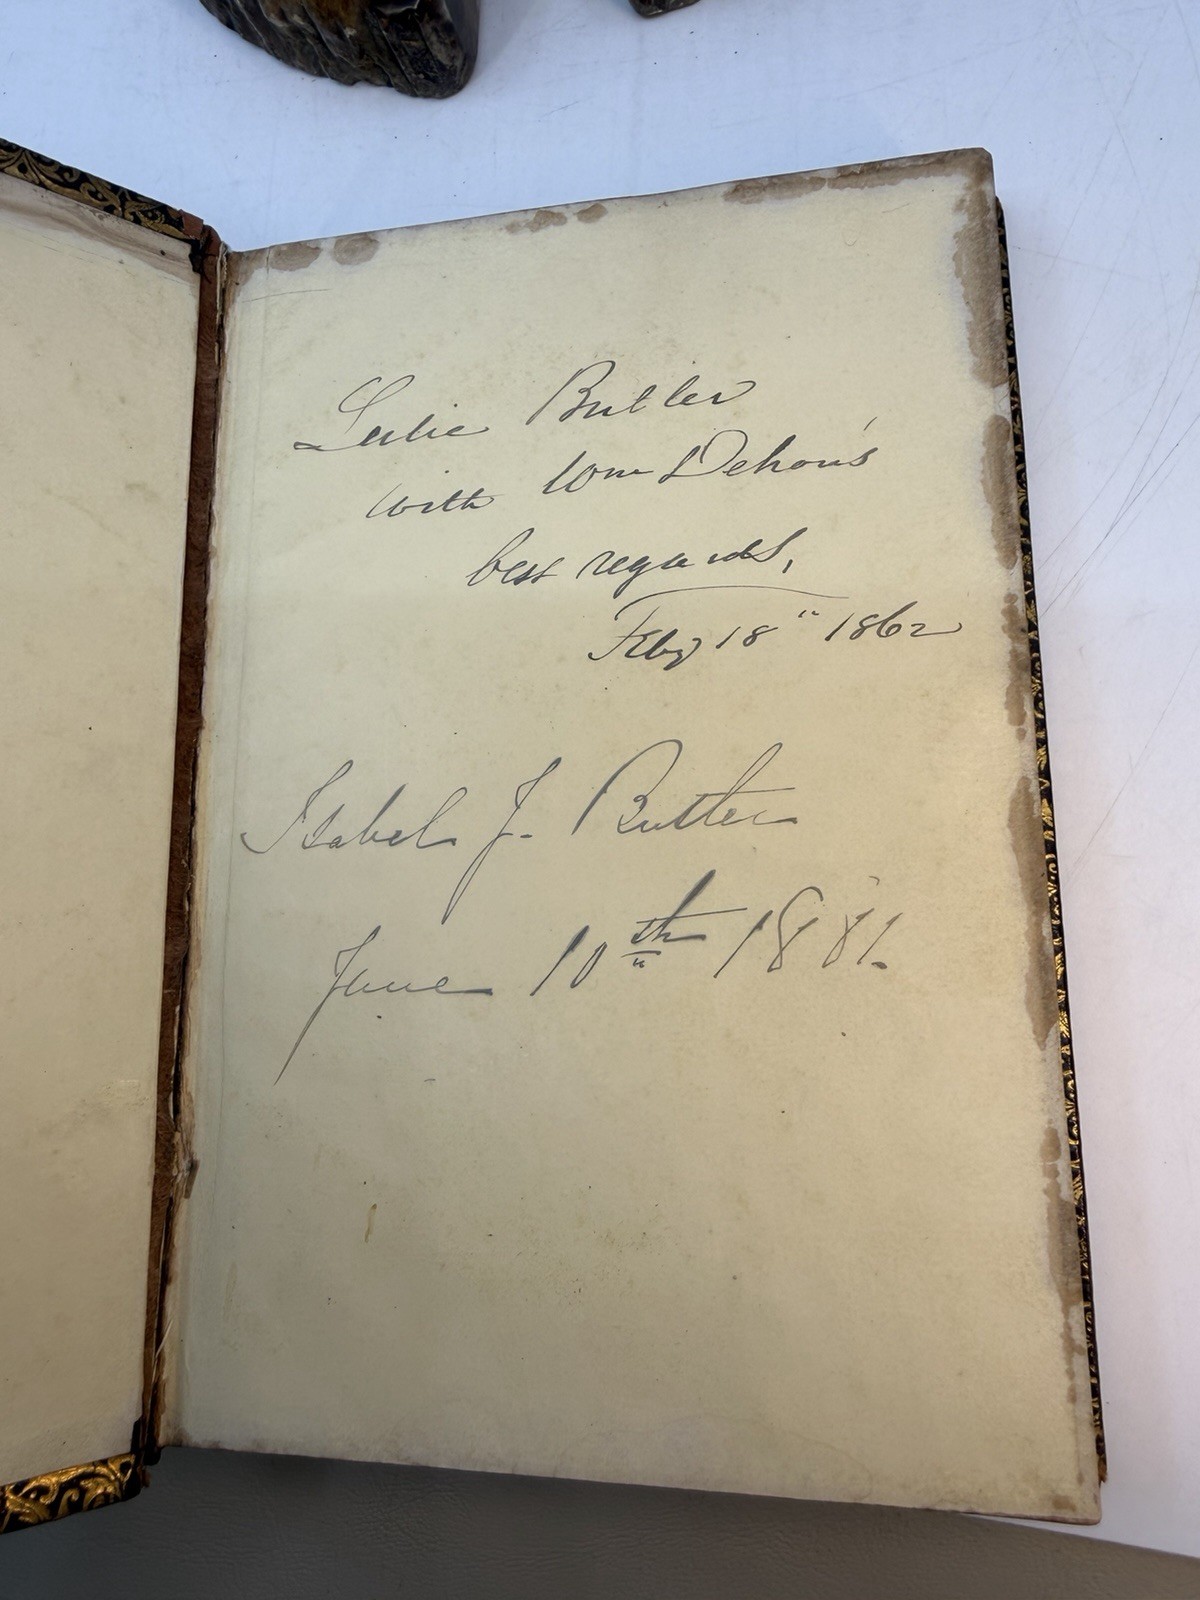 Leslie Butler
with Wm Dehon's
best regards,
Feby 18" 1862
Isabel J. Butler
June 10th 1881.